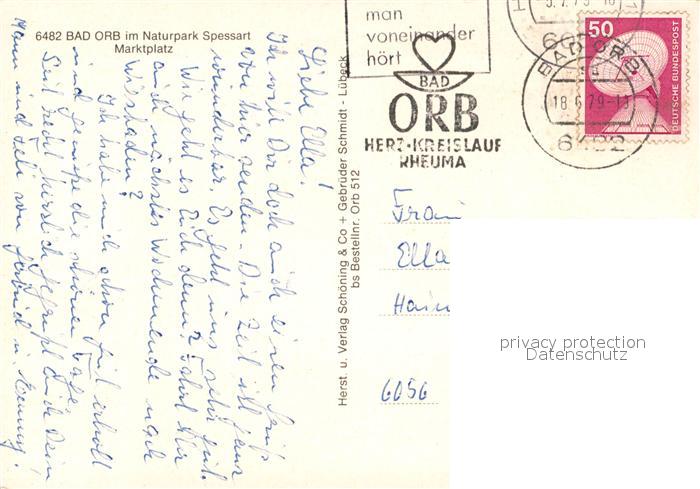 6482 BAD ORB im Naturpark Spessart
Marktplatz
Liebe Ella!
Ich will Dir doch auch einen Gruß
von hier senden. Die Zeit ist ganz
wunderbar. Es geht uns sehr gut.
Wie geht es Euch denn? Fahrt Ihr
auch nächstes Wochenende nach
Wiesbaden?
Ich habe mich schon gut erholt
und genieße die schönen Tage.
Seid recht herzlich gegrüßt auch Dein
Mann und von
Herst. u. Verlag Schöning & Co + Gebrüder Schmidt - Lübeck
bs Bestellnr. Orb 512
man
voneinander
hört
BAD
ORB
HERZ·KREISLAUF
RHEUMA
BAD ORB
18.6.79-1
50
DEUTSCHE BUNDESPOST
Frau
Ella
Hain
6056
privacy protection
Datenschutz